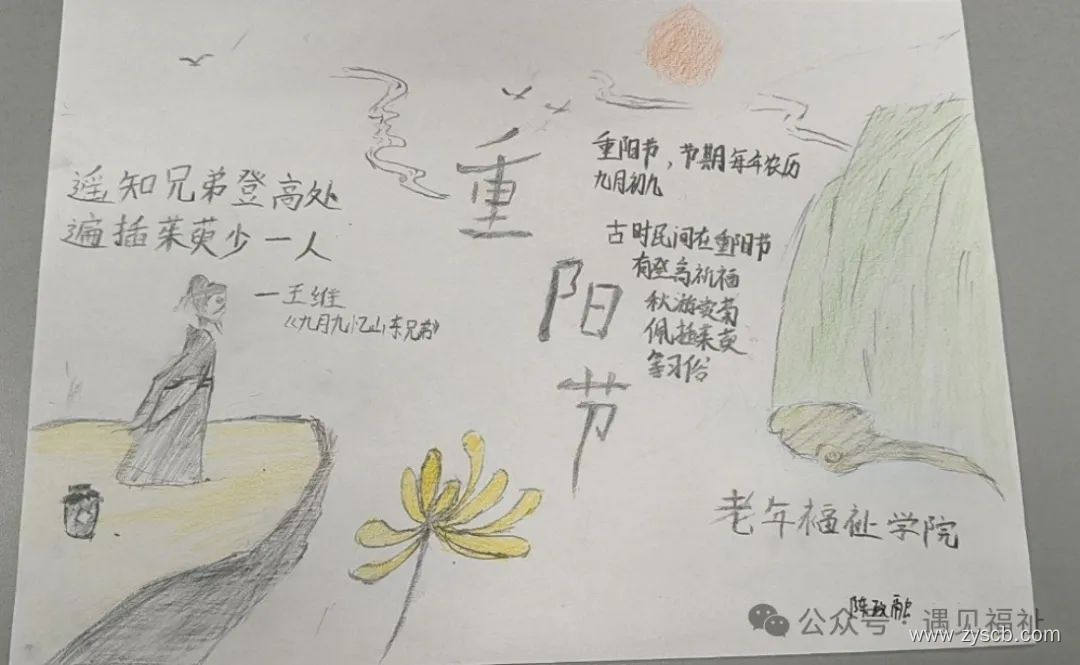 遥知兄弟登高处
遍插茱萸少一人
—王维
《九月九忆山东兄弟》
重
阳
节
重阳节，节期每年农历
九月初九
古时民间在重阳节
有登高祈福
秋游赏菊
佩插茱萸
等习俗
老年福祉学院
陈政
公众号 遇见福祉
www.zyscb.com